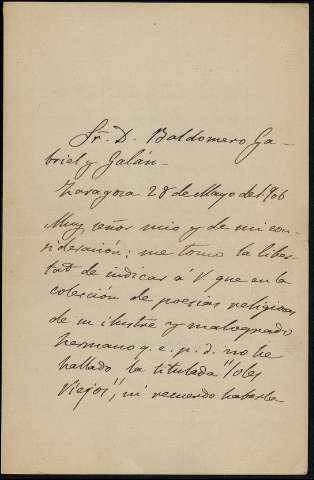 Sr. D. Baldomero Ga-
briel y Galán-
Zaragoza 28 de Mayo de 1906
Muy señor mio y de mi con-
sideración: me tomo la liber-
tad de indicar á V. que en la
colección de poesías religiosas
de su ilustre y malogrado
hermano q. e. p. d. no he
hallado la titulada "Soles
Viejos", ni recuerdo haberla